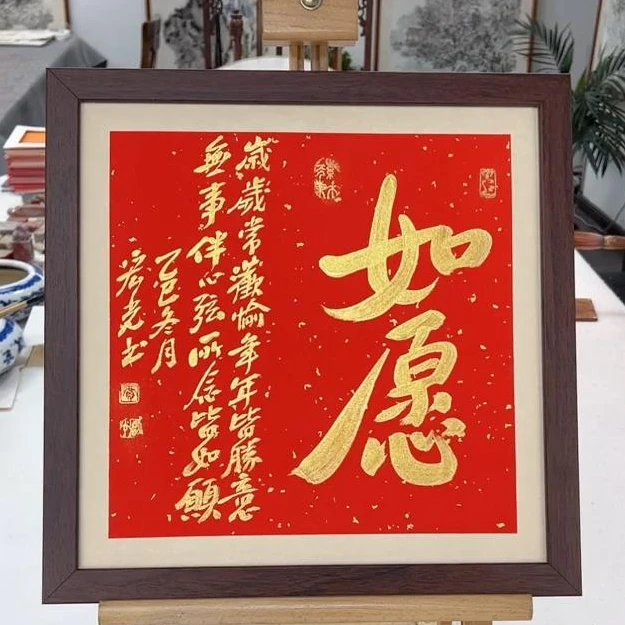 如愿
歲歲常歡愉年年皆勝意
無事伴心弦所念皆如願
乙巳冬月
光书